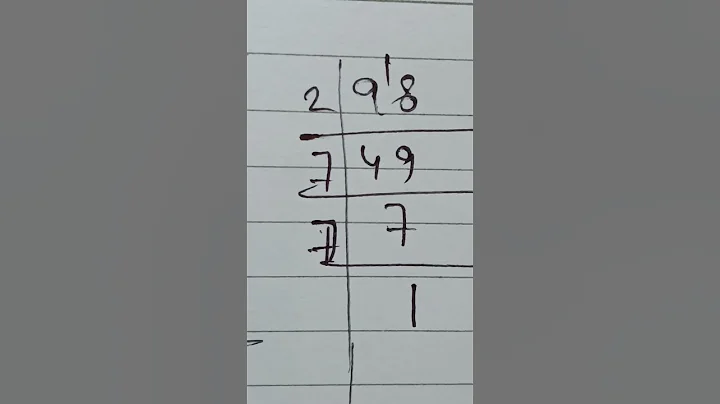 2 98
7 49
7 7
1